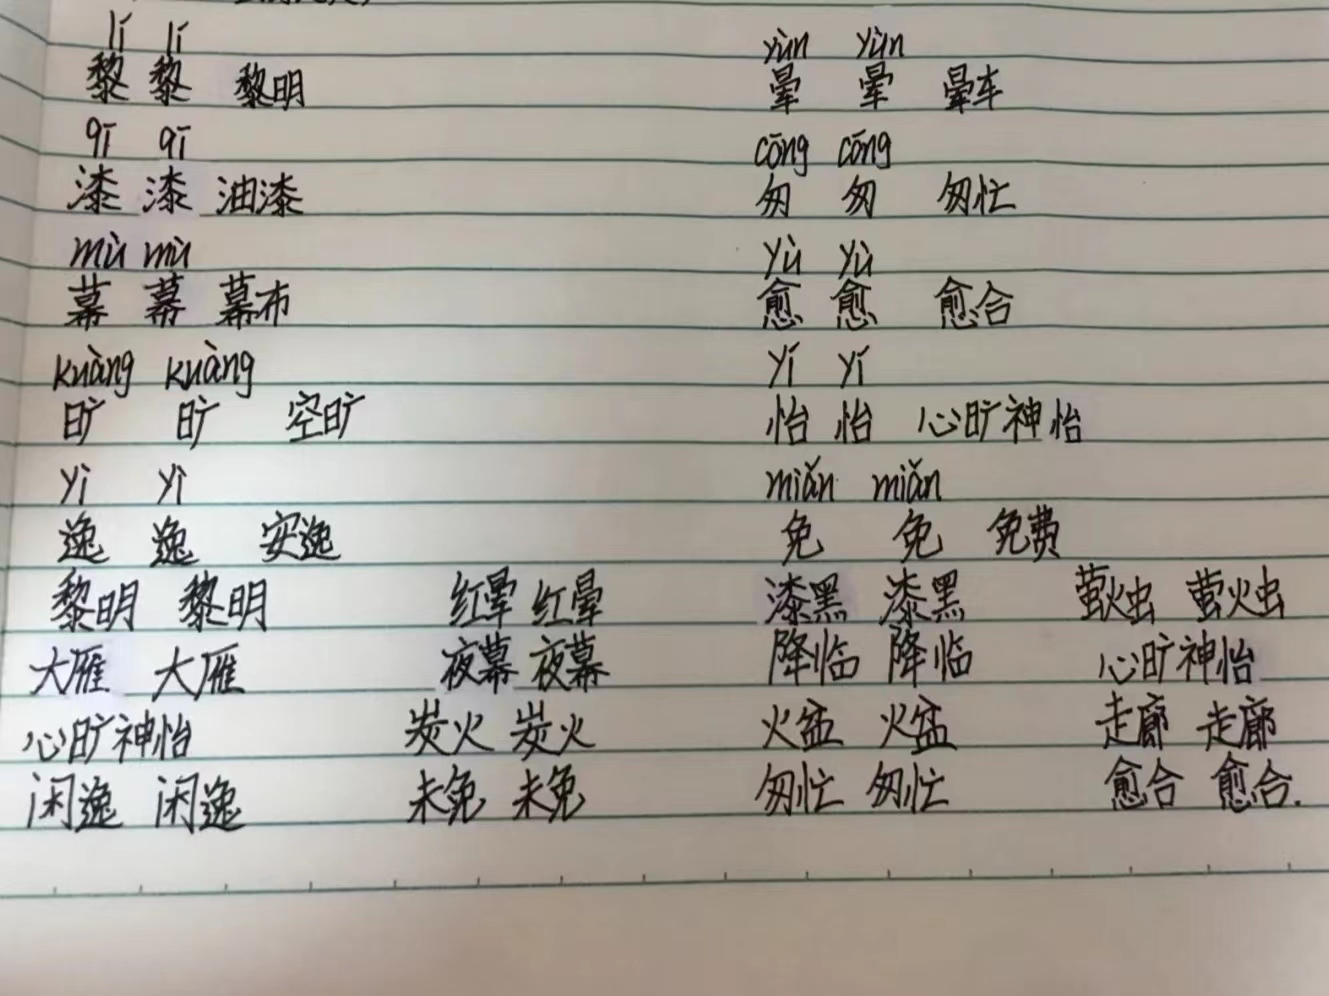 lí lí yùn yùn
黎 黎 黎明 晕 晕 晕车
qī qī cōng cōng
漆 漆 油漆 匆 匆 匆忙
mù mù yù yù
幕 幕 幕布 愈 愈 愈合
kuàng kuàng yí yí
旷 旷 空旷 怡 怡 心旷神怡
yì yì miǎn miǎn
逸 逸 安逸 免 免 免费
黎明 黎明 红晕 红晕 漆黑 漆黑 萤火虫 萤火虫
大雁 大雁 夜幕 夜幕 降临 降临 心旷神怡
心旷神怡 炭火 炭火 火盆 火盆 走廊 走廊
闲逸 闲逸 未免 未免 匆忙 匆忙 愈合 愈合.